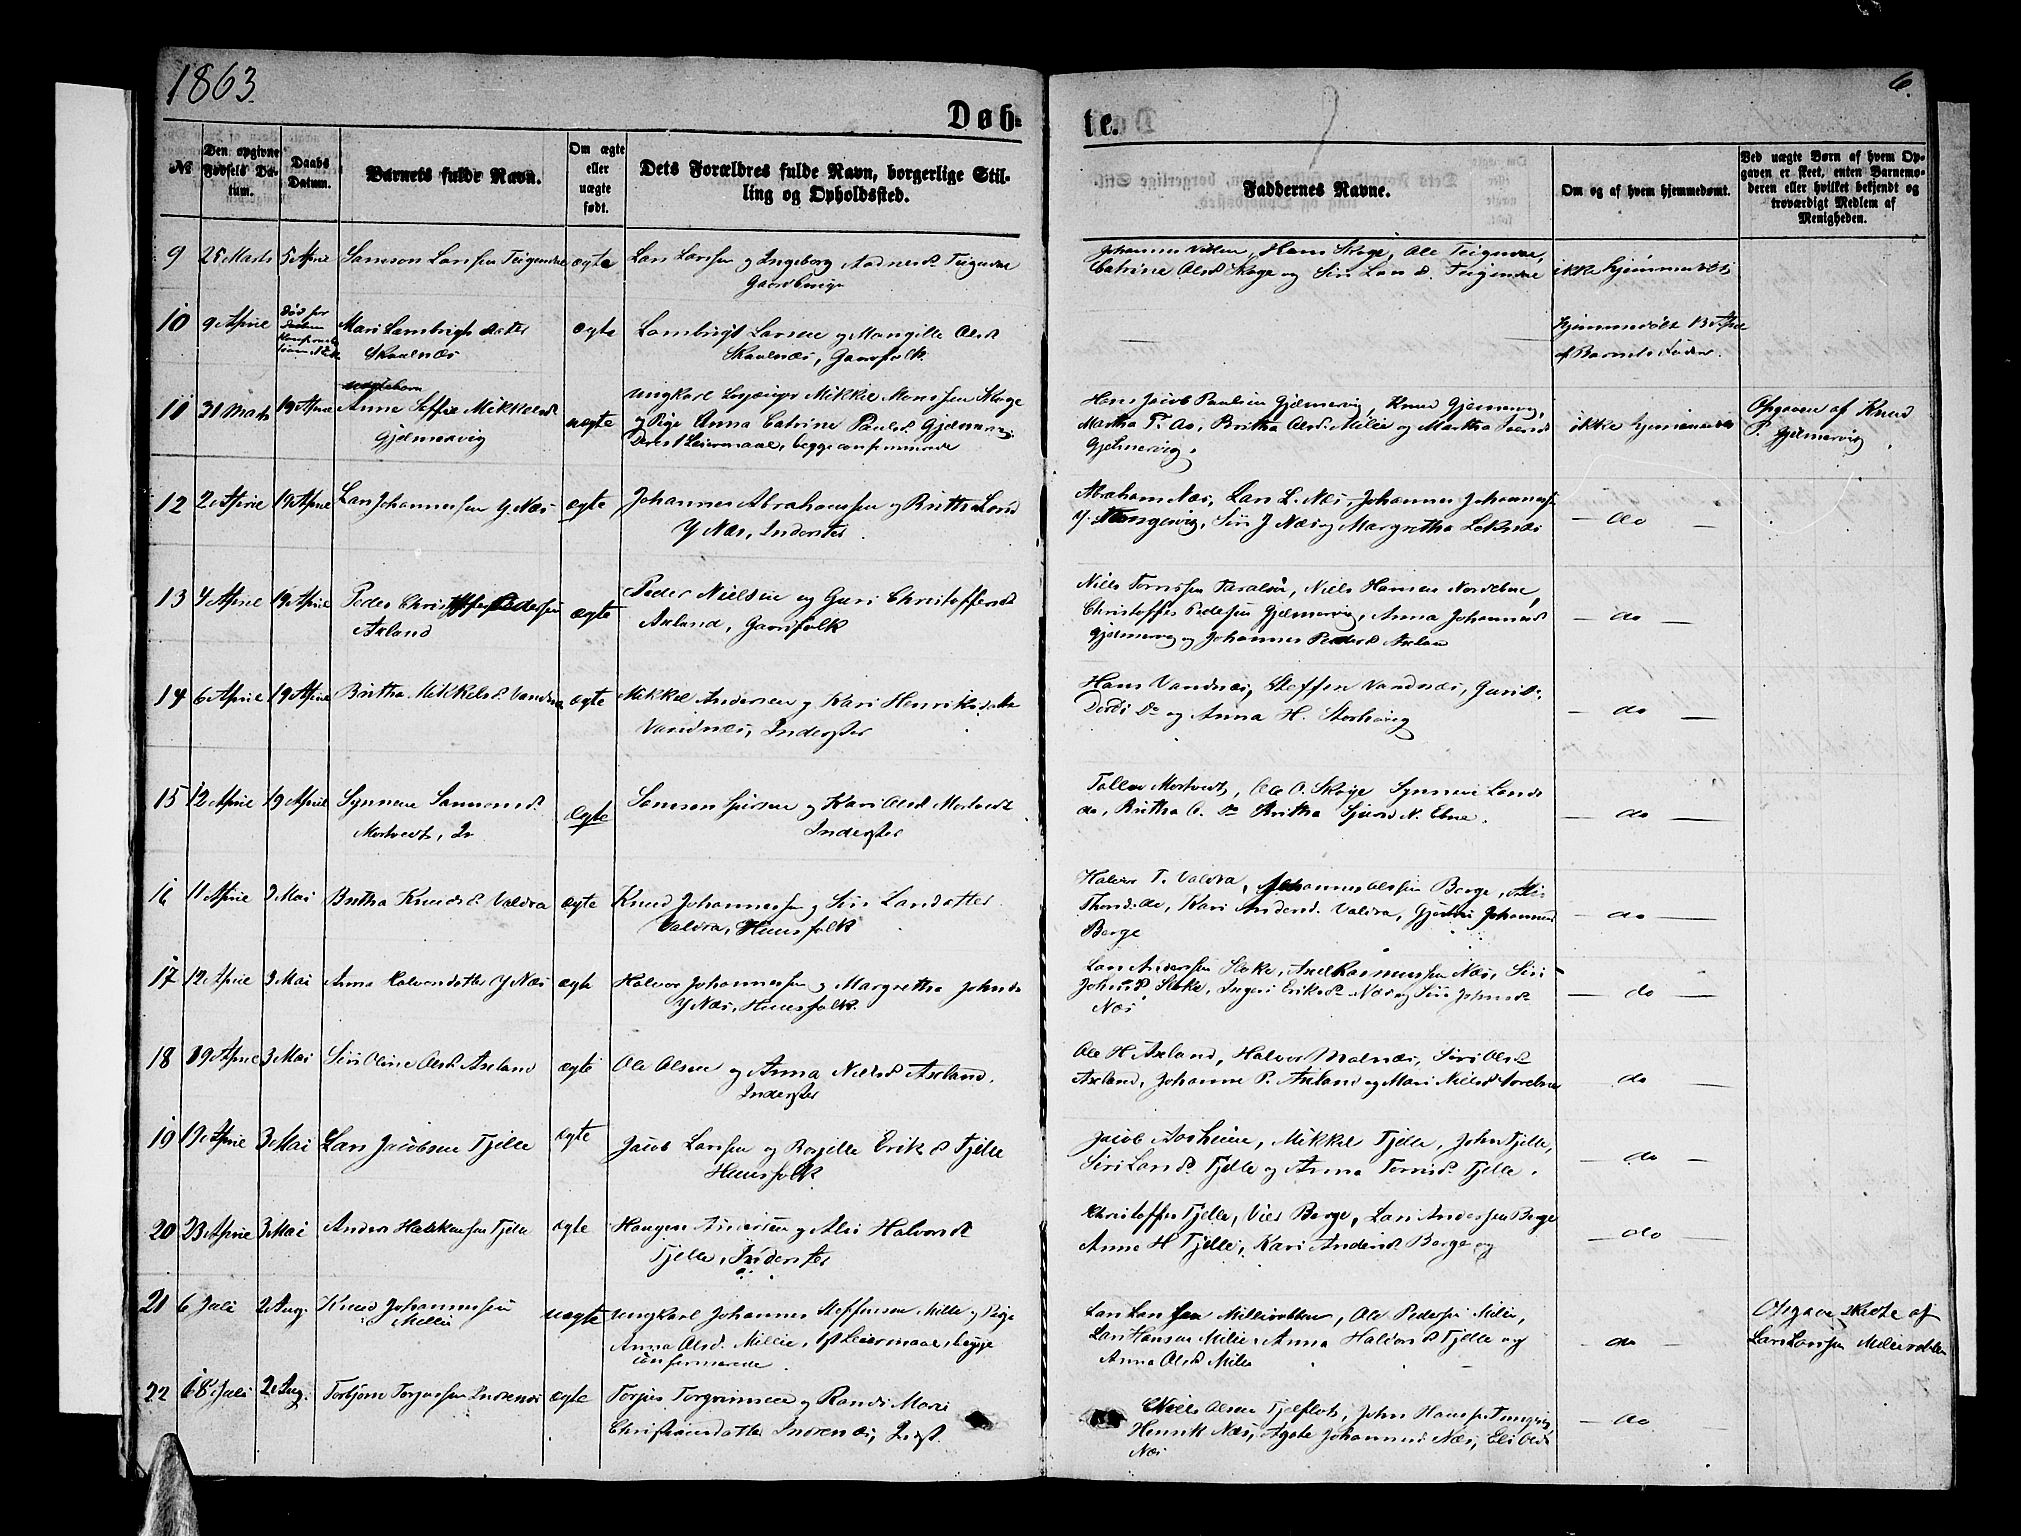 1863
6
Døb-
te.
№
Den opgivne Fødsels Datum.
Daabs Datum.
Barnets fulde Navn.
Om ægte eller uægte født.
Dets Forældres fulde Navn, borgerlige Stilling og Opholdssted.
Faddernes Navne.
Om og af hvem hjemmedøbt.
Ved uægte Børn af hvem Opgaven er skeet, enten Barnemoderen eller hvilket bekjendt og troværdigt Medlem af Menigheden.
9 25 Marts 5 April Samson Larssen Teigendal ægte Lars Larssen og Ingeborg Aadnesd. Teigendal
Gaardbruger
Johannes Hans Skoge, Ole Teigendal,
Catrine Olsd. Skoge og Siri Larsd. Teigendal
ikke hjemmedøbt
10 9 April Død før
Mari Lambrigtsdatter ægte Lambrigt Larsen og Mangille Olsd.
Skaalnæs
Skaalnæs, Gaardfolk.
hjemmedøbt 13 April
af Barnets Fader.
11 31 Marts 19 April uægtebarn
Anne Mikkelsd.
Gjelmervig
uægte
Ungkarl Mikkel Monssen Skoge
og Pige Anna Catrine Paulsd. Gjelmervig
Deres 1 Leiermaal, begge confirmerede
Hans Jacob Paulsen Gjelmervig, Knud Gjelmervig,
Martha T. Aa, Britha Olsd. Milie og Martha
Gjelmervig.
ikke hjemmedøbt
Opgaven af Knud
P. Gjelmervig
12 2 April 19 April Lars Johannessen Y. Næs ægte Johannes Abrahamsen og Britha Larsd.
Y Næs, Inderster
Abraham Næs, Lars L. Næs, Johannes Johanness.
Y. Siri J Næs og Margretha Leknæs
— do —
13 4 April 19 April Peder Christoffer Pedersen
Axland
ægte Peder Nielsen og Guri Christoffersd.
Axland, Gaardfolk
Niels Hansen Nordebne,
Christoffer Pedersen Gjelmervig, Anna Johannesd.
Gjelmervig og Johannes Pedersd. Axland
— do —
14 6 April 19 April Britha Mikkelsd. Vandnæs ægte Mikkel Andersen og Kari Henriksdatter
Vandnæs, Inderster
Hans Vandnæs, Steffen Vandnæs, Guri
Dordi Do og Anna H. Storhoug
— do —
15 12 April 19 April Synneve Samsonsd.
Mortvedt, In
ægte Samson Sjursen og Kari Olsd. Mortvedt
Inderster
Tollev Mortvedt, Ole O. Skoge Synneve Larsd.
do, Britha O. Do Britha Sjursd. N. Ebne.
— do —
16 11 April 3 Mai Britha Knudsd. Valdra ægte Knud Johannessen og Siri Larsdatter
Valdra, Huusfolk
Halvor T. Valdra, Johannes Olssen Berge,
do, Kari Andersd. Valdra, Johannesd.
Berge
— do —
17 12 April 3 Mai Anna Halvorsdatter Y Næs ægte Halvor Johannessen og Margretha Johnsd.
Y Næs, Huusfolk.
Lars Anderssen Axel Rasmussen Næs, Siri
Johnsd. Ingeri Eriksd. Næs og Siri Johnsd.
Næs
— do —
18 19 April 3 Mai Siri Oline Olsd. Axland ægte Ole Olsen og Anna Nielsd. Axland,
Inderster
Ole H Axland, Halvor Malnæs, Siri Olsd.
Axland, Johanne P. Axland og Mari Nielsd. Nordebne
— do —
19 19 April 3 Mai Lars Jacobsen Tjelle ægte Jacob Larssen og Eriksd. Tjelle
Huusfolk
Jacob Aasheim, Mikkel Tjelle, John Tjelle,
Siri Larsd. Tjelle og Anna Tormsd. Tjelle.
— do —
20 23 April 3 Mai Anders Tjelle ægte Haagen Andersen og Alis Halvorsd.
Tjelle, Inderster
Christoffer Tjelle, Niels Berge, Lars Anderssen Berge
Anna H Tjelle, Kari Andersd. Berge og
— do —
21 6 Juli 2 Aug. Knud Johannessen
Millie
uægte Ungkarl Johannes Steffensen Millie og Pige
Anna Olsd. Millie, 1st Leiermaal, begge
confirmerede.
Lars Larssen Ole Pedersen Milie,
Lars Hansen Milie, Anna Halvorsd. Tjelle og
Anna Olsd. Milie
— do —
Opgaven skede af
Lars Larssen
22 18 Juli 2 Aug. Torbjørn Torjussen Indrenæs ægte Torjus Torgrimsen og Randi Mari
Christiansdatter Indrenæs, Indst.
Niels Olsen Tjelflot, John Hanssen
Henrik Næs, Agate Johannesd. Næs, Eli Olsd.
Næs
— do —